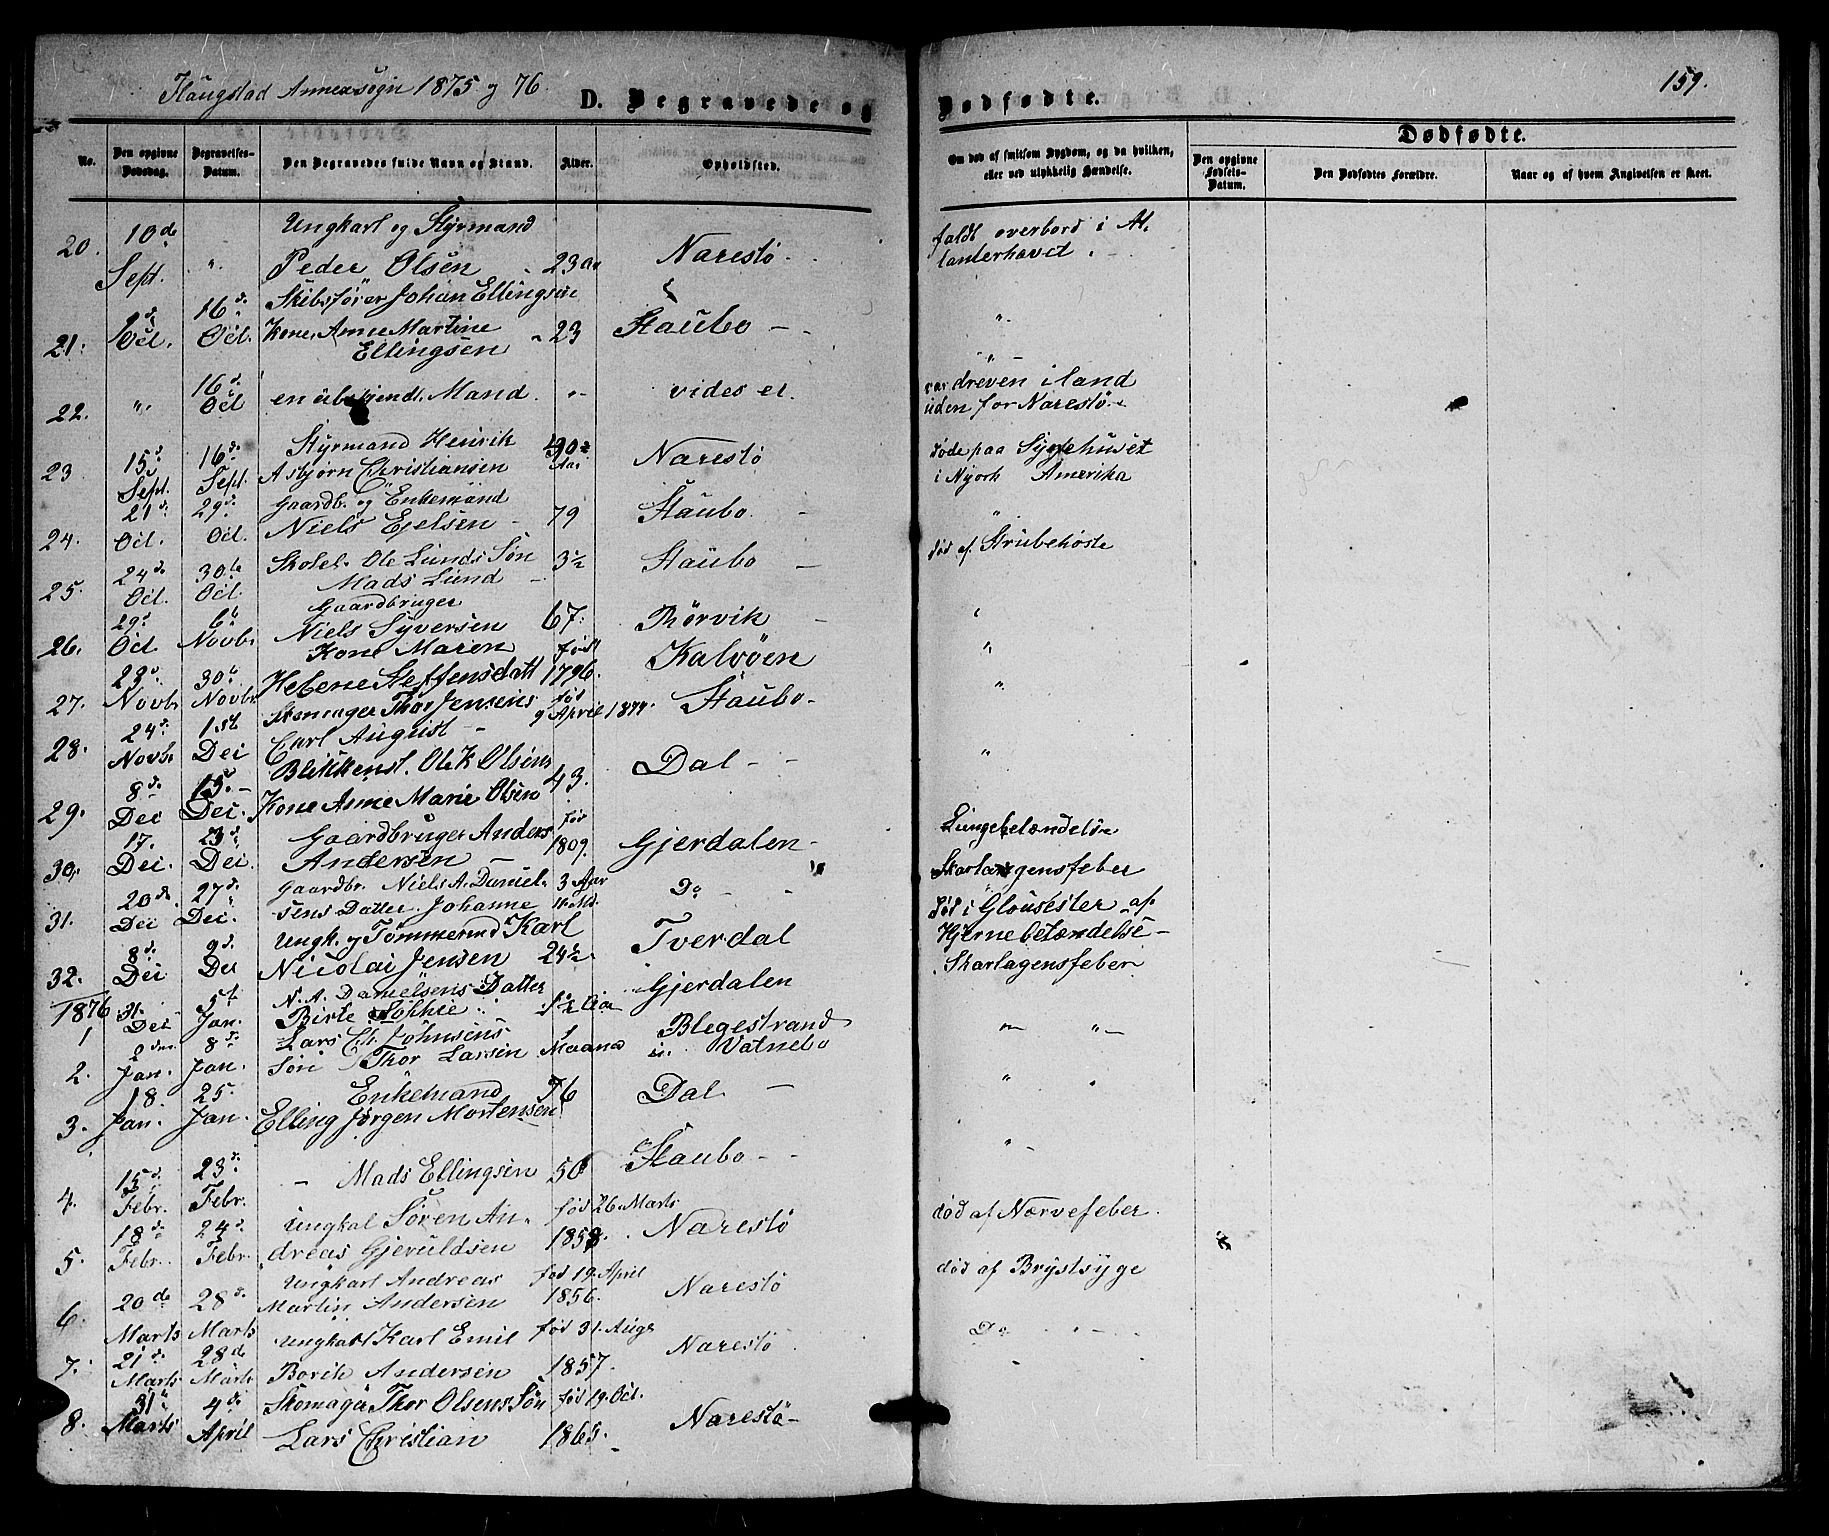 Flaugstad Annexsogn 1875 og 76.
D. Begravede og Dødfødte.
159.
No.
Den opgivne Dødsdag.
Begravelses-Datum.
Den Begravedes fulde Navn og Stand.
Alder.
Opholdsted.
Om død af smitsom Sygdom, og da hvilken, eller ved ulykkelig Hændelse.
Dødfødte.
Den opgivne Fødsels-Datum.
Den Dødfødtes Forældre.
Naar og af hvem Angivelsen er skeet.
20. 10de Sept. " Ungkarl og Styrmand Peder Olsen 23 Narestö faldt overbord i Atlanterhavet.
21. Oct. 16d. Oct. Skibsfører Johan Ellingsens Kone, Anne Martine Ellingsen 23 Staubo "
22. " 16d. Oct en ubekjendt Mand. " vides ei. var dreven iland uden for Narestö
23 15d. Sept. 16d. Sept. Styrmand Henrik Asbjørn Christiansen Aar Narestö døde paa Sygehuset i Nyork Amerika
24. 21d. Oct. 29d. Oct. Gaardbr. og Enkemand Niels Ejelsen 79 Staubo. "
25. 24d. Oct. 30te Oct. Skolel. Ole Lunds Søn Mads Lund 3½ Staubo død af Strubehoste
26. 29d. Oct. 6te Novbr. Gaardbruger Niels Syversen 67. Börvik "
27. 23d. Novbr 30te Novbr. Kone Maren Helene Steffensdatt født 1796. Kalvöen "
28. 24d. Novbr. 1ste Dec Skomager Thor Jensens Carl August fød 9 April 1874. Staubo "
29. 8d. Dec 15. Dec. Blikkensl. Ole K Olsens Kone Anne Marie Olsen 43. Dal "
30. 17. Dec. 23d. Dec Gaardbruger Anders Andersen fød 1809. Gjerdalen Lungebetændelse
31. 20de. Dec 27d. Dec. Gaardbr. Niels A. Danielsens Datter Johanne 3 Aar 11 Md. Do Skarlagensfeber
32. 8d. Dec 9d. Dec Ungk. og Tømmermd Karl Nicolai Jensen 24½. Tverdal død i Glousester af Hjernebetændelse
1876
1 31. Dec 5te Jan. N. A. Danielsens Datter Birte Sophie Gjerdalen Skarlagensfeber
2. Jan. 8d. Jan. Lars Ch. Johnsens Søn Thor Larsen 1 Maaned Blegestrand Vatnebo " "
3. 18. Jan. 25. Jan. Enkemand Elling Jørgen Mortensen 76 Dal "
4. 15d. Febr. 23d. Febr. Mads Ellingsen 50 Staubo "
5. 18d. Febr. 24d. Febr. Ungkal Sören Andreas Gjeruldsen fød 26. Marts 1858. Narestö død af Nærvefeber.
6. 20de Marts 28d. Marts Ungkarl Andreas Martin Andersen fød 19. April 1856. Narestö død af Brystsyge
7. 21d. Marts 28de Marts Ungkarl Karl Emil Borik Andersen fød 31. Augs 1857. Narestö Do
8. 31te Marts 4de April Skomager Thor Olsens Søn Lars Christian fød 19. Oct. 1865. Narestö